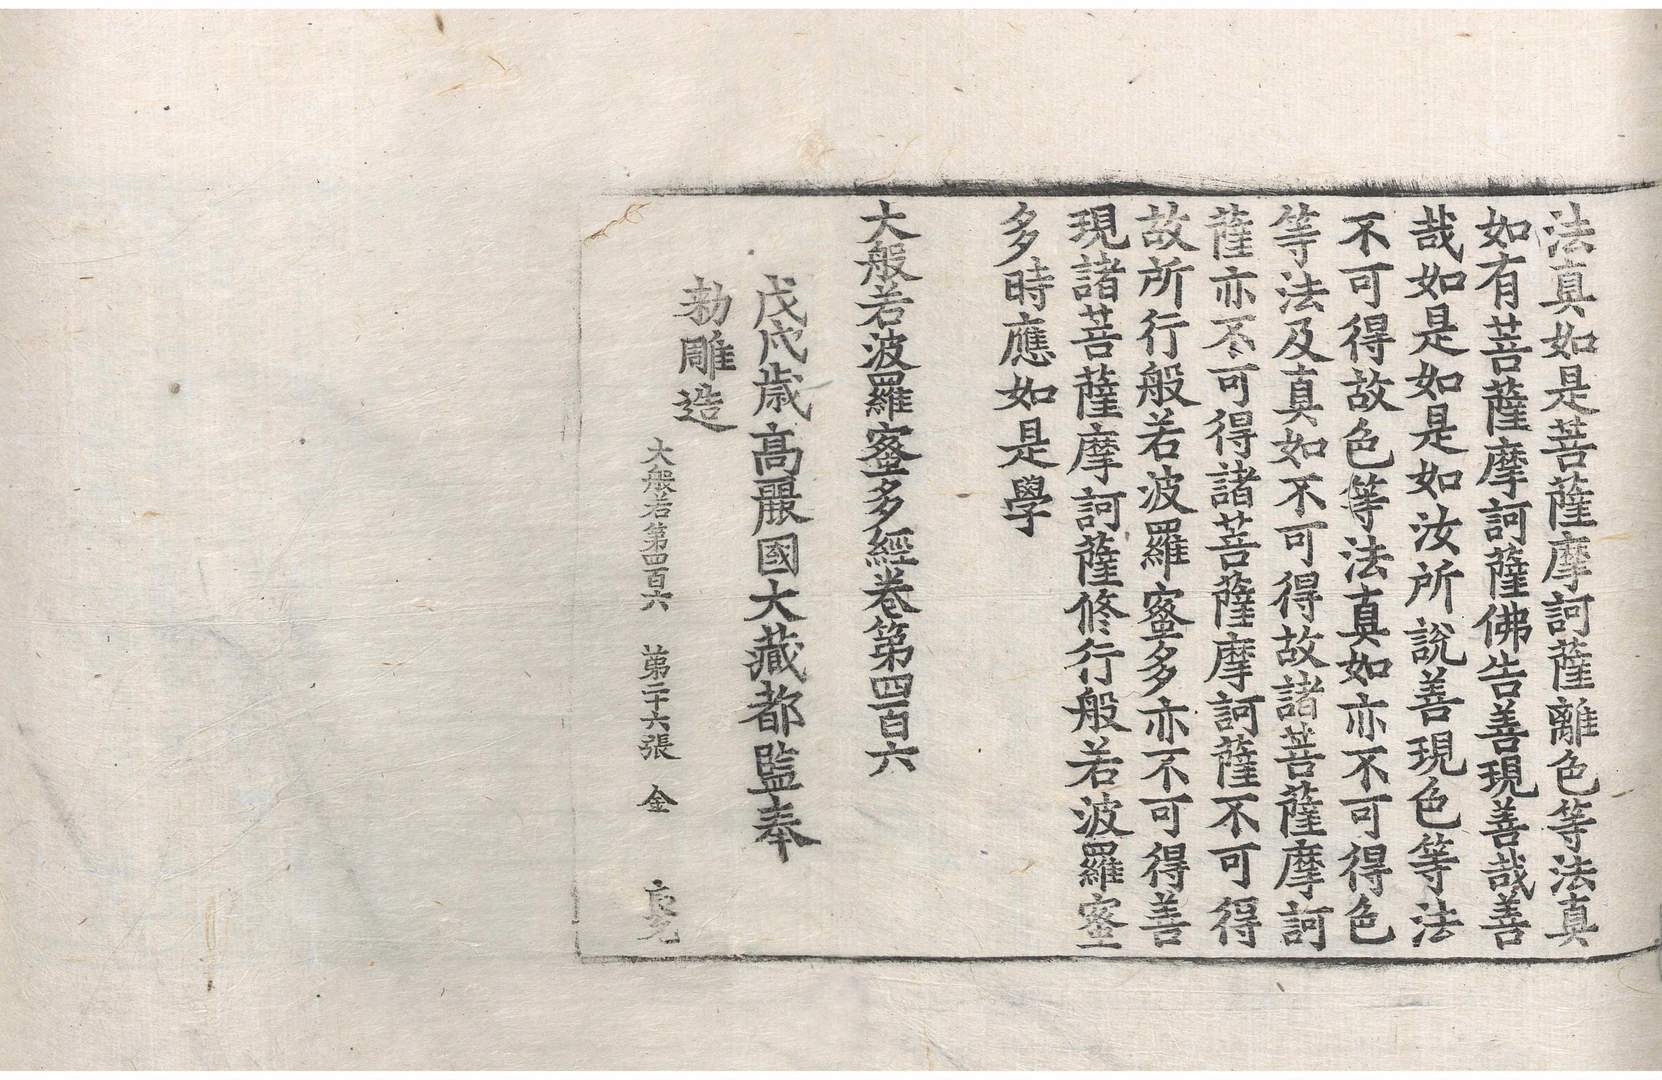 法真如是菩薩摩訶薩離色等法真
如有菩薩摩訶薩佛告善現善哉善
哉如是如是如汝所說善現色等法
不可得故色等法真如亦不可得色
等法及真如不可得故諸菩薩摩訶
薩亦不可得諸菩薩摩訶薩不可得
故所行般若波羅蜜多亦不可得善
現諸菩薩摩訶薩修行般若波羅蜜
多時應如是學
大般若波羅蜜多經卷第四百六
戊戌歲高麗國大藏都監奉
勅雕造
大般若第四百六 第二十六張 金